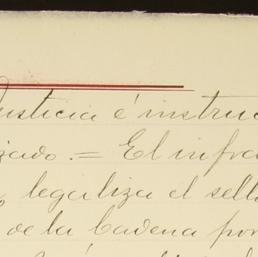 Justicia é instruc
zado.= El infra
legaliza el sell
de la Cadena por